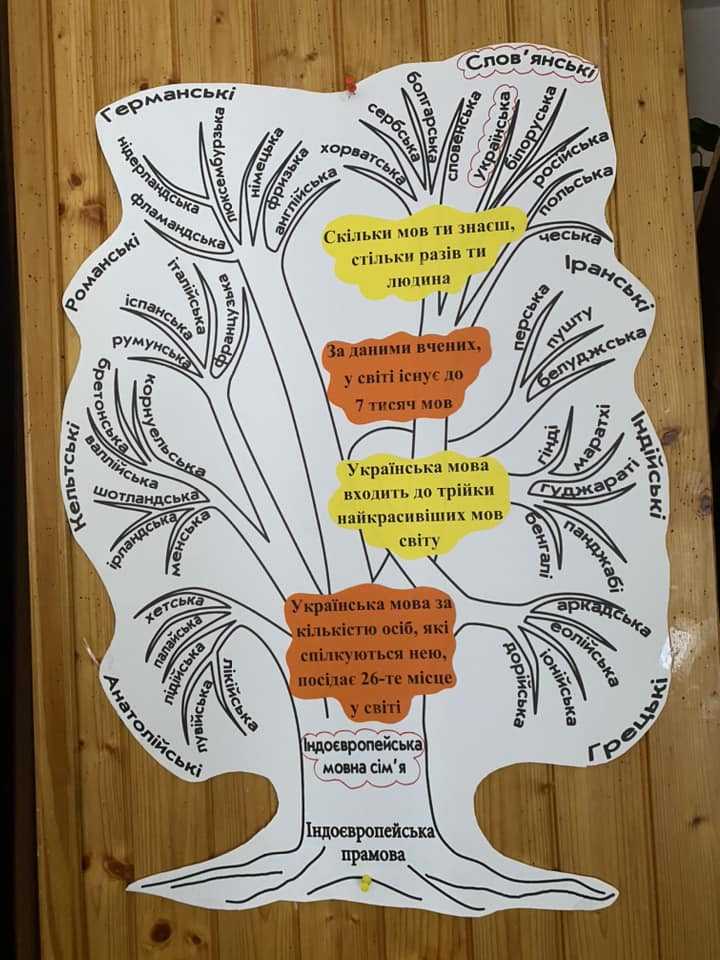 Слов’янські
хорватська
сербська
болгарська
словенська
українська
білоруська
російська
польська
чеська
Германські
нідерландська
фламандська
люксембурзька
німецька
фризька
англійська
Скільки мов ти знаєш,
стільки разів ти
людина
Романські
румунська
іспанська
італійська
французька
Іранські
перська
пушту
белуджська
За даними вчених,
у світі існує до
7 тисяч мов
Кельтські
бретонська
корнуельська
валлійська
шотландська
ірландська
менська
Індійські
гінді
маратхі
гуджараті
панджабі
бенгалі
Українська мова
входить до трійки
найкрасивіших мов
світу
Анатолійські
хетська
палайська
лідійська
лувійська
лікійська
Грецькі
аркадська
еолійська
іонійська
дорійська
Українська мова за
кількістю осіб, які
спілкуються нею,
посідає 26-те місце
у світі
Індоєвропейська
мовна сім’я
Індоєвропейська
прамова